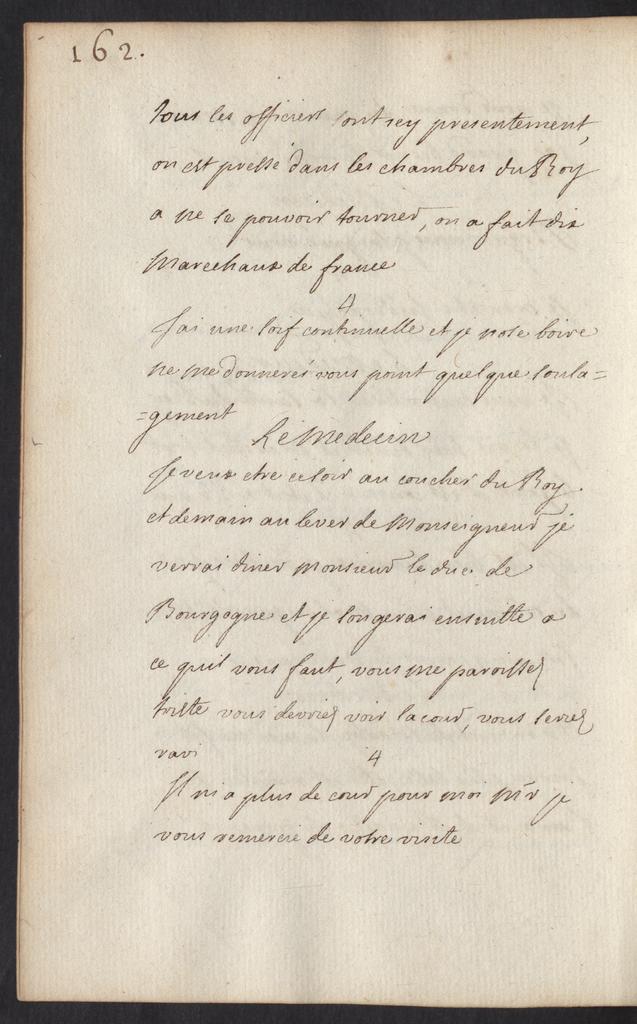 162.
tous les officiers sont icy presentement,
on est pressé dans les chambres du Roy
a ne se pouvoir tourner, on a fait dix
Marechaux de france
4
J'ai une soif continuelle et je nose boire
ne me donnerés vous point quelque soula=
=gement
Le Medecin
Je veux etre ce soir au coucher du Roy.
et demain au lever de Monseigneur je
verrai diner Monsieur le duc de
Bourgogne et je songerai ensuitte a
ce quil vous faut, vous me paroissez
triste vous devriez voir la cour, vous seriez
ravi
4
Il ni a plus de cour pour moi Mr je
vous remercie de votre visite